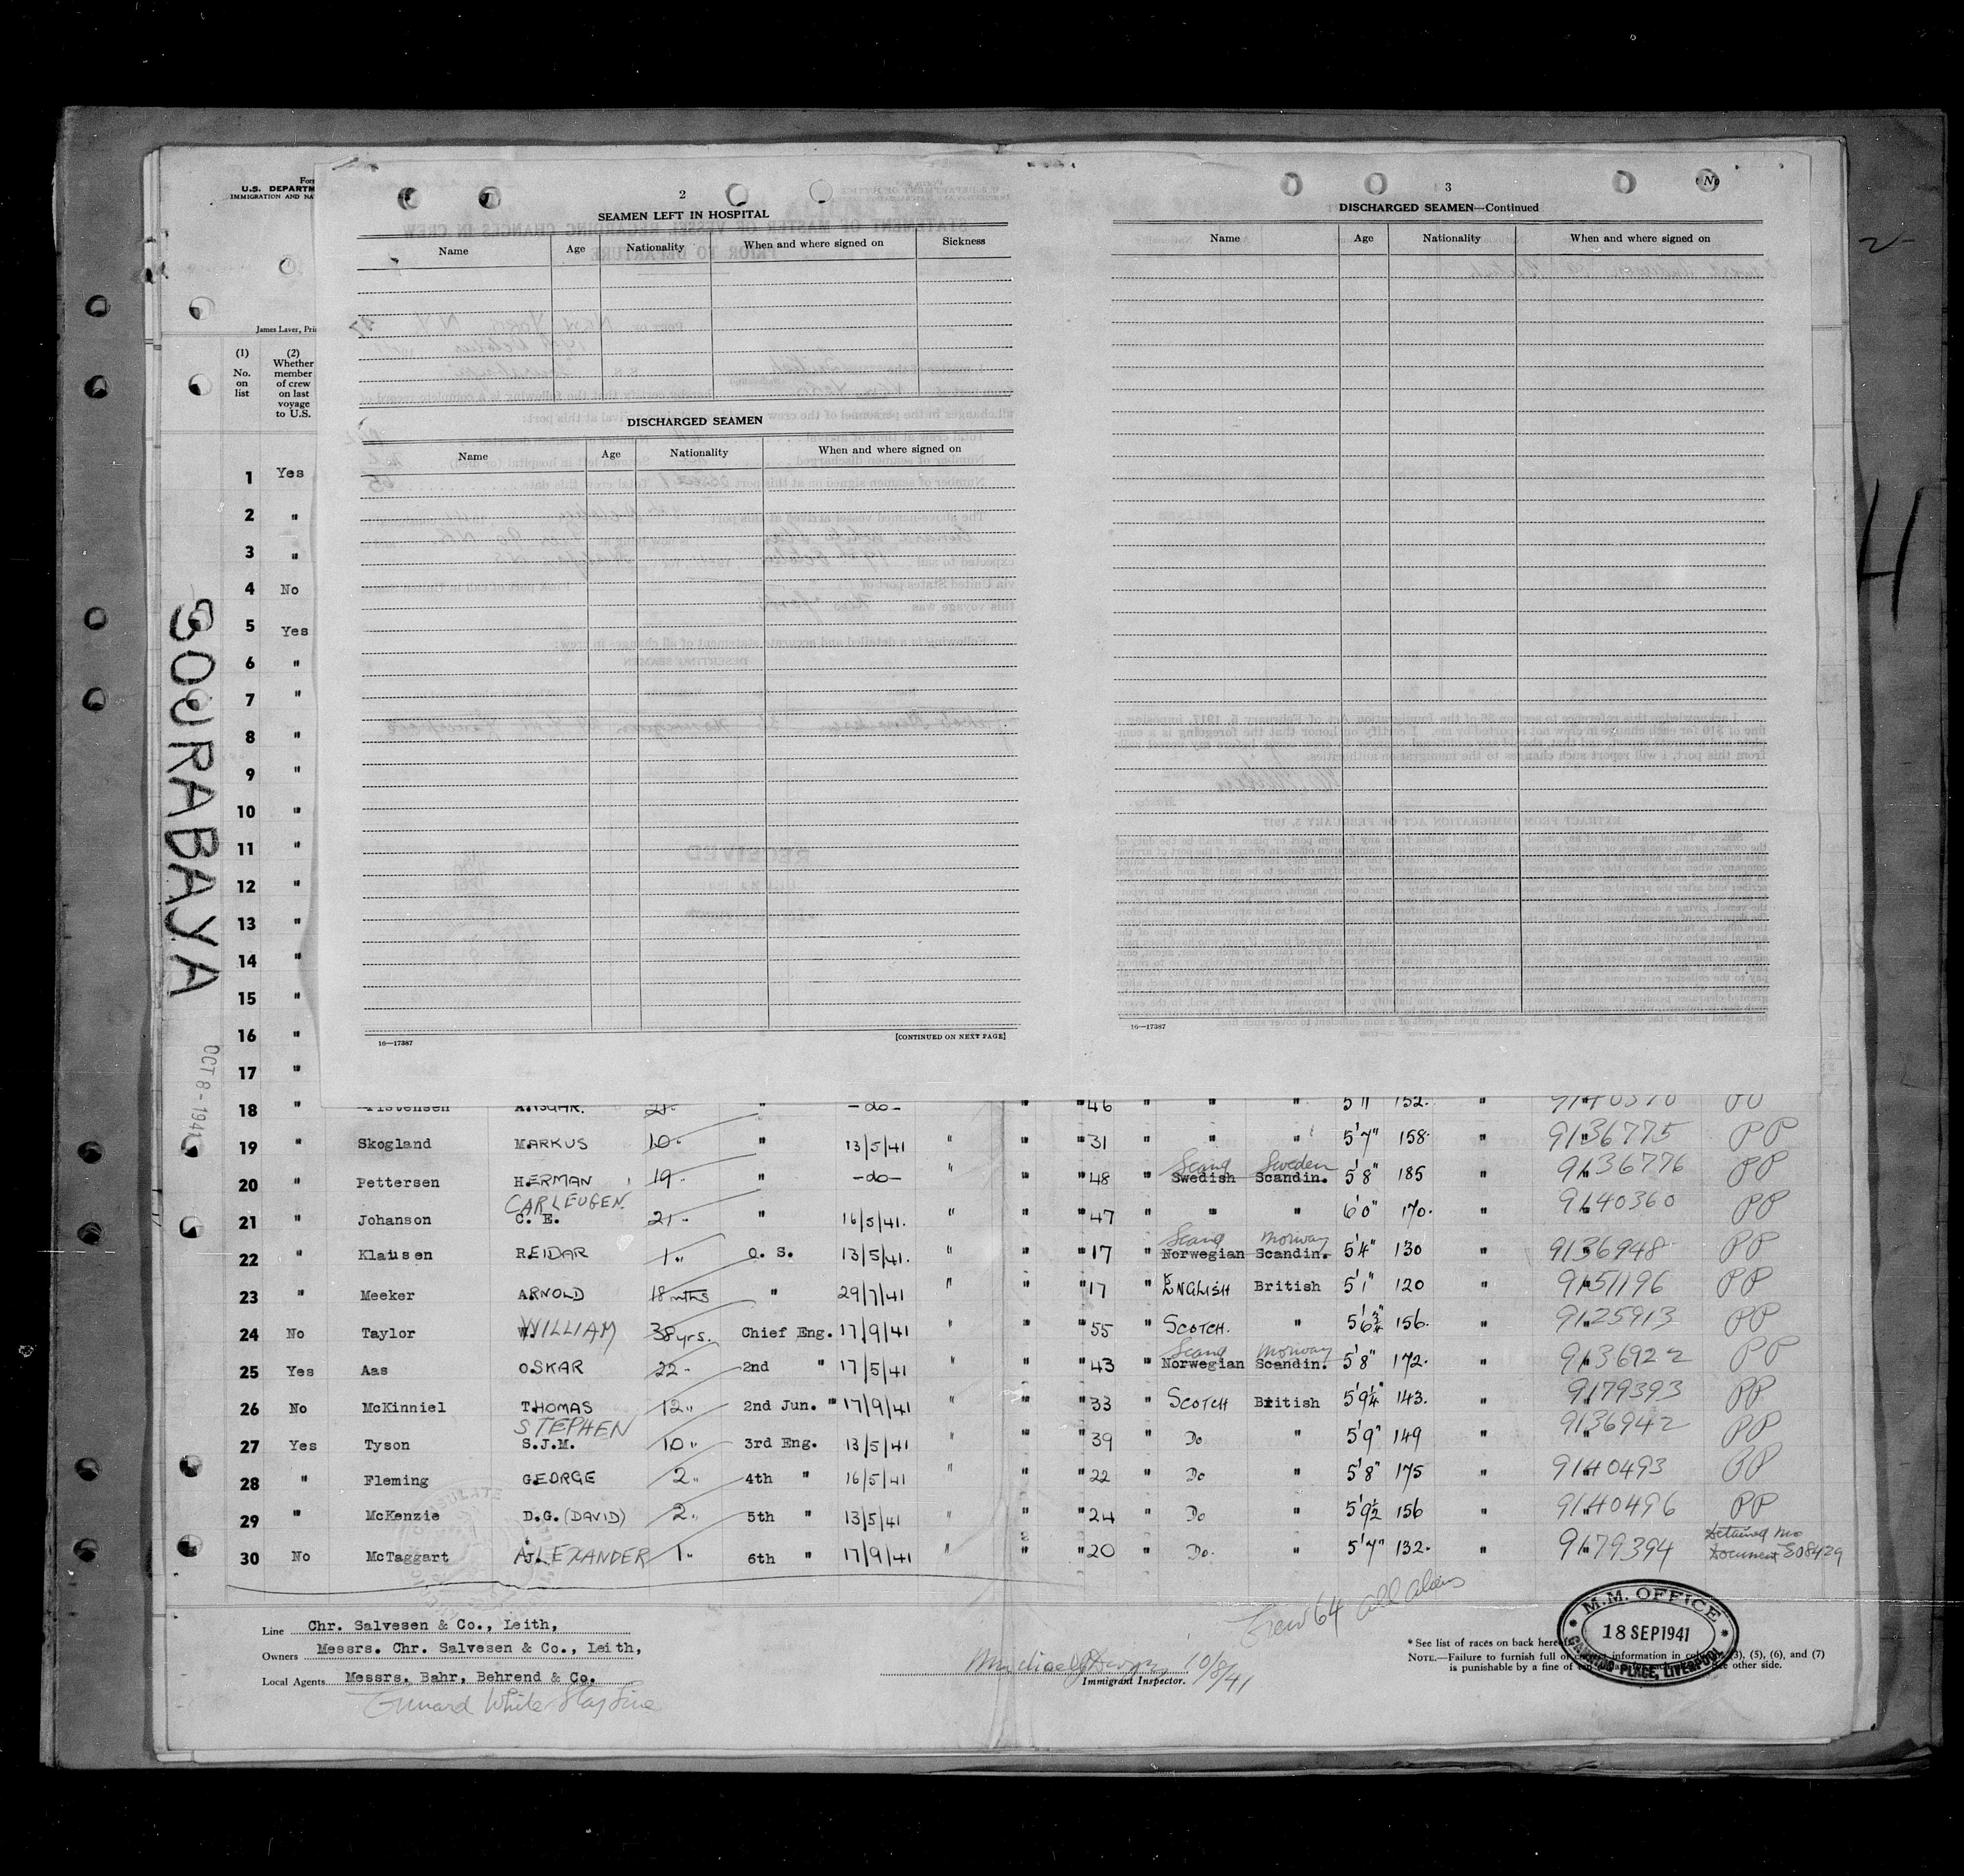 Form
U.S. DEPARTM
IMMIGRATION AND NA
James Laver, Pri
2
SEAMEN LEFT IN HOSPITAL
Name Age Nationality When and where signed on Sickness
DISCHARGED SEAMEN
Name Age Nationality When and where signed on
16—17387 [CONTINUED ON NEXT PAGE]
3
No
DISCHARGED SEAMEN—Continued
Name Age Nationality When and where signed on
16—17387
2
H
SOURABAYA
OCT 8 - 1941
(1) No. on list
(2) Whether member of crew on last voyage to U.S.
1 Yes
2 "
3 "
4 No
5 Yes
6 "
7 "
8 "
9 "
10 "
11 "
12 "
13 "
14 "
15 "
16 "
17 "
18 " 21 " -do- " " "46 " " 5'11 152. "
19 " Skogland MARKUS 10 " " 13/5/41 " " "31 " " 5'7" 158. " 9136775 PP
20 " Pettersen HERMAN 19 " " -do- " " "48 " Scand Sweden Swedish Scandin. 5'8" 185 " 9136776 PP
21 " Johanson CARL EUGEN. C. E. 21 " " 16/5/41. " " "47 " " 6'0" 170. " 9140360 PP
22 " Klausen REIDAR 1 " O. S. 13/5/41. " " "17 Scand Norway Norwegian Scandin. 5'4" 130 " 9136948 PP
23 " Meeker ARNOLD 18 mths " 29/7/41 " " "17 " ENGLISH British 5'1" 120 " 9151196 PP
24 No Taylor W. WILLIAM 38 yrs. Chief Eng. 17/9/41 " " "55 " SCOTCH. " 5'6¾" 156. " 9125913 PP
25 Yes Aas OSKAR 22 " 2nd " 17/5/41 " " "43 " Scand Norway Norwegian Scandin. 5'8" 172. " 9136922 PP
26 No McKinniel THOMAS 12 " 2nd Jun. " 17/9/41 " " "33 " SCOTCH British 5'9¼" 143. " 9179393 PP
27 Yes Tyson STEPHEN S.J.M. 10 " 3rd Eng. 13/5/41 " " "39 " Do " 5'9" 149 " 9136942 PP
28 " Fleming GEORGE 2 " 4th " 16/5/41 " " "22 " Do " 5'8" 175 " 9140493 PP
29 " McKenzie D.G. (DAVID) 2 " 5th " 13/5/41 " " "24 " Do " 5'9½ 156 " 9140496 PP
30 No McTaggart ALEXANDER 1 " 6th " 17/9/41 " " "20 " Do. " 5'7" 132. " 9179394 Detained No Document E08429
Crew 64 all aliens
Line Chr. Salvesen & Co., Leith,
Owners Messrs. Chr. Salvesen & Co., Leith,
Local Agents Messrs. Bahr, Behrend & Co.
Cunard White Star Line
10/8/41
Immigrant Inspector.
* See list of races on back here
NOTE.—Failure to furnish full or correct information in columns (3), (5), (6), and (7)
is punishable by a fine of other side.
M.M. OFFICE
18 SEP 1941
CANNING PLACE, LIVERPOOL